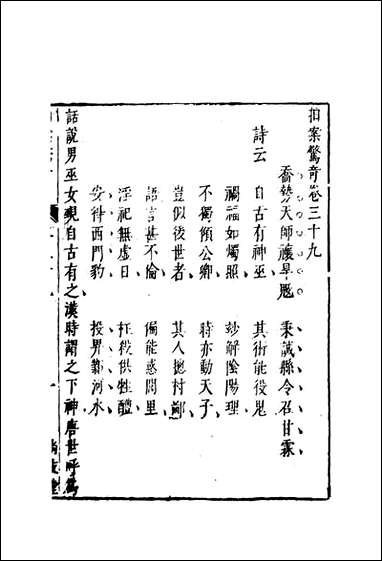 拍案驚奇卷三十九
喬勢天師禳旱魃 秉誠縣令召甘霖
詩云 自古有神巫 其術能役鬼
禍福如燭照 妙解陰陽理
不獨傾公卿 時亦動天子
豈似後世者 其人摠村鄙
語言甚不倫 偏能惑閭里
淫祀無虛日 枉殺供牲醴
安得西門豹 投畀鄴河水
話說男巫女覡自古有之漢時謂之下神唐世呼爲